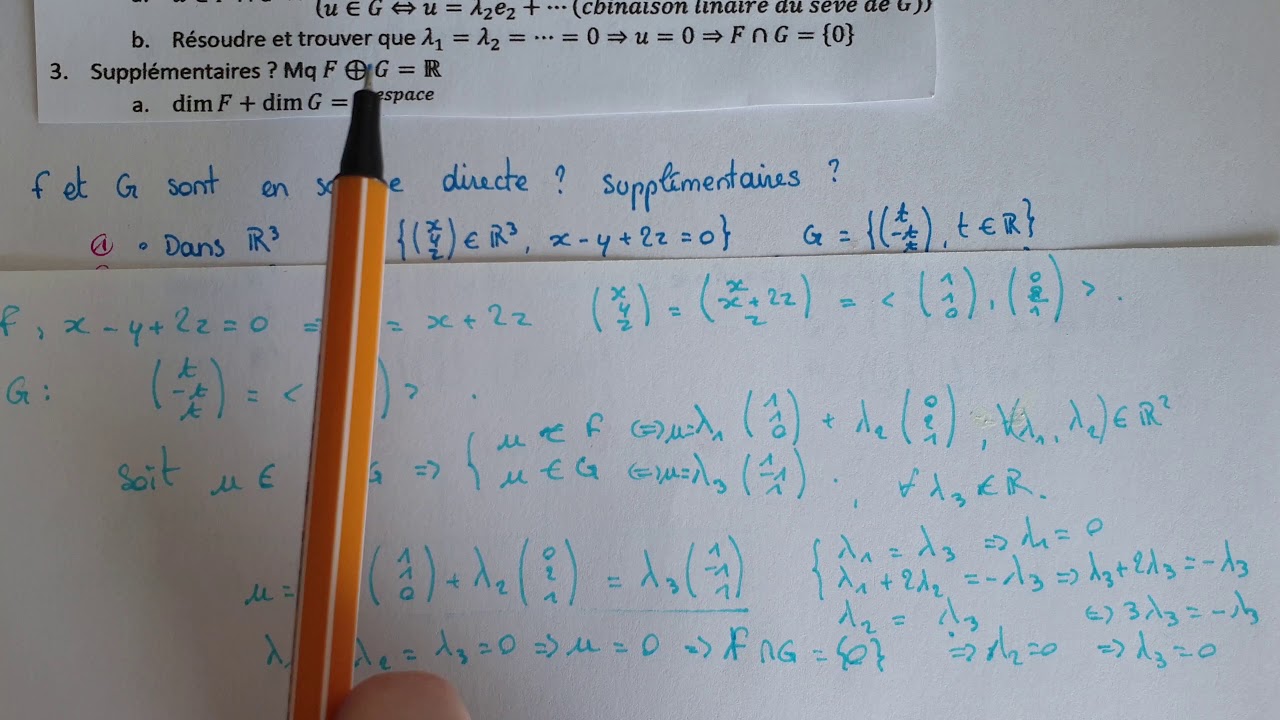 (u ∈ G ⇔ u = λ₂e₂ + ⋯ (cbinaison linaire du sevé de G))
b. Résoudre et trouver que λ₁ = λ₂ = ⋯ = 0 ⇒ u = 0 ⇒ F ∩ G = {0}
3. Supplémentaires ? Mq F ⊕ G = ℝ
a. dim F + dim G = espace
F et G sont en directe ? supplémentaires ?
ⓐ • Dans ℝ³ {(x y z) ∈ ℝ³, x - y + 2z = 0} G = {(t -t t), t ∈ ℝ}
F, x - y + 2z = 0 = x + 2z (x y z) = (x x+2z z) = < (1 1 0), (0 2 1) > .
G : (t -t t) = < > .
Soit u ∈ G ⇒ { u ∈ F ⇔ u = λ₁ (1 1 0) + λ₂ (0 2 1), ∀(λ₁, λ₂) ∈ ℝ²
u ∈ G ⇔ u = λ₃ (1 -1 1) , ∀ λ₃ ∈ ℝ.
u = (1 1 0) + λ₂ (0 2 1) = λ₃ (1 -1 1) { λ₁ = λ₃ ⇒ λ₁ = 0
λ₁ + 2λ₂ = -λ₃ ⇒ λ₃ + 2λ₃ = -λ₃
λ₂ = λ₃ ⇔ 3λ₃ = -λ₃
λ₂ = λ₃ = 0 ⇒ u = 0 ⇒ F ∩ G = {0} ⇒ λ₂ = 0 ⇒ λ₃ = 0